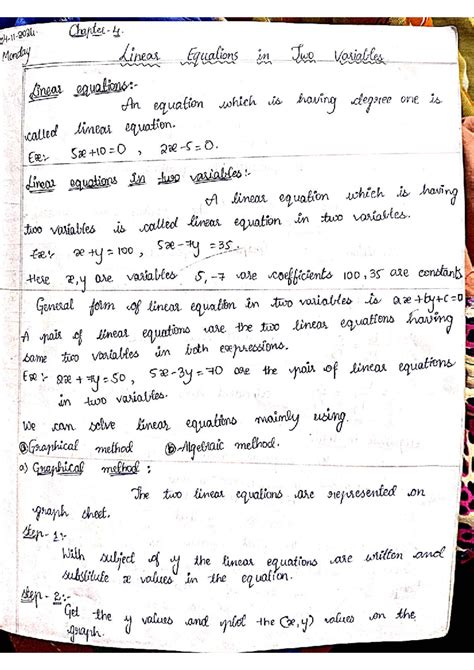 Chapter-4
Monday
Linear Equations in Two Variables
Linear equations:-
An equation which is having degree one is
called linear equation.
Ex:- 5x+10=0 , 2x-5=0.
Linear equations in two variables:-
A linear equation which is having
two variables is called linear equation in two variables.
Ex:- x+y=100 , 5x-7y=35.
Here x,y are variables 5,-7 are coefficients 100,35 are constants
General form of linear equation in two variables is ax+by+c=0
A pair of linear equations are the two linear equations having
same two variables in both expressions.
Ex:- 2x+7y=50, 5x-3y=70 are the pair of linear equations
in two variables.
We can solve linear equations mainly using.
ⓐGraphical method ⓑAlgebraic method.
a) Graphical method :
The two linear equations are represented on
graph sheet.
Step-1:-
With subject of y the linear equations are written and
substitute x values in the equation.
Step-2:-
Get the y values and plot the (x,y) values on the
graph.